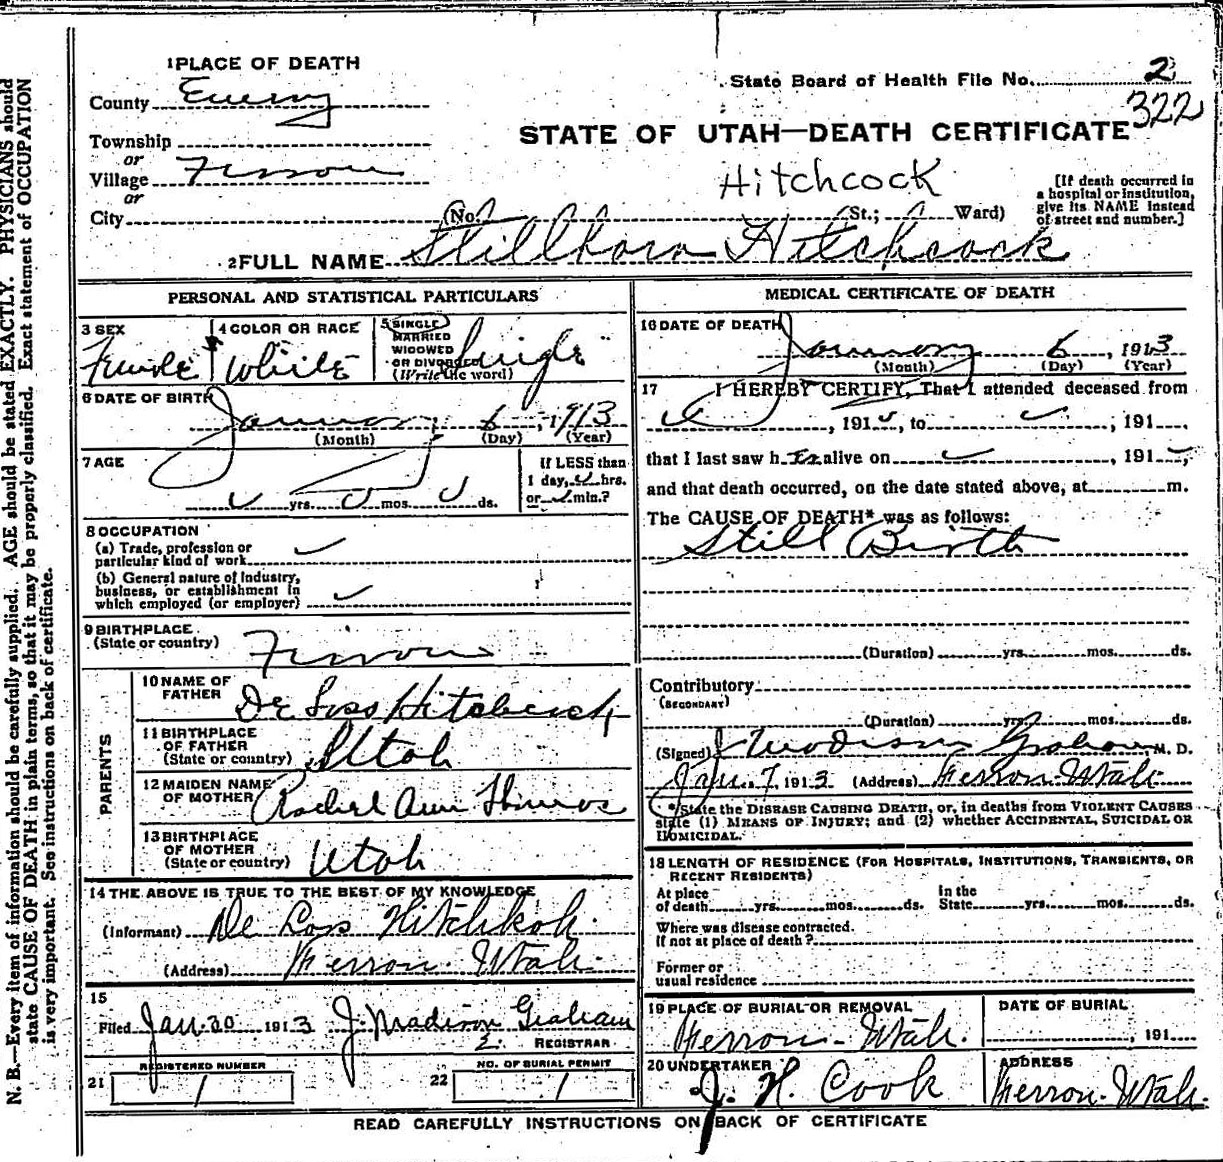 1 PLACE OF DEATH
State Board of Health File No. 2
County Emery
322
STATE OF UTAH—DEATH CERTIFICATE
Township
or
Village Ferron
or
Hitchcock
[If death occurred in
a hospital or institution,
give its NAME instead
of street and number.]
City (No. St.; Ward)
2 FULL NAME Stillborn Hitchcock
PERSONAL AND STATISTICAL PARTICULARS
3 SEX
Female
4 COLOR OR RACE
White
5 SINGLE
MARRIED
WIDOWED
OR DIVORCED
(Write the word)
Single
6 DATE OF BIRTH
January 6, 1913
(Month) (Day) (Year)
7 AGE
yrs. mos. ds.
If LESS than
1 day, hrs.
or min.?
8 OCCUPATION
(a) Trade, profession or
particular kind of work
(b) General nature of industry,
business, or establishment in
which employed (or employer)
9 BIRTHPLACE
(State or country) Ferron
PARENTS
10 NAME OF
FATHER De Loss Hitchcock
11 BIRTHPLACE
OF FATHER
(State or country) Utah
12 MAIDEN NAME
OF MOTHER Rachel Ann
13 BIRTHPLACE
OF MOTHER
(State or country) Utah
14 THE ABOVE IS TRUE TO THE BEST OF MY KNOWLEDGE
(Informant) De Loss
(Address) Ferron. Utah.
15
Filed Jan. 20 1913 J. Madison Graham
REGISTRAR
21 REGISTERED NUMBER
1
22 NO. OF BURIAL PERMIT
1
MEDICAL CERTIFICATE OF DEATH
16 DATE OF DEATH
January 6, 1913
(Month) (Day) (Year)
17 I HEREBY CERTIFY, That I attended deceased from
, 191 , to , 191
that I last saw h er alive on , 191 ,
and that death occurred, on the date stated above, at m.
The CAUSE OF DEATH* was as follows:
Still Birth
(Duration) yrs. mos. ds.
Contributory
(SECONDARY)
(Duration) yrs. mos. ds.
(Signed) J Madison Graham M. D.
Jan. 7, 1913 (Address) Ferron Utah.
*State the DISEASE CAUSING DEATH, or, in deaths from VIOLENT CAUSES
state (1) MEANS OF INJURY; and (2) whether ACCIDENTAL, SUICIDAL OR
HOMICIDAL.
18 LENGTH OF RESIDENCE (FOR HOSPITALS, INSTITUTIONS, TRANSIENTS, OR
RECENT RESIDENTS)
At place
of death yrs. mos. ds.
In the
State yrs. mos. ds.
Where was disease contracted.
If not at place of death?
Former or
usual residence
19 PLACE OF BURIAL OR REMOVAL
Ferron. Utah.
DATE OF BURIAL
, 191
20 UNDERTAKER
J. H. Cook
ADDRESS
Ferron. Utah.
READ CAREFULLY INSTRUCTIONS ON BACK OF CERTIFICATE
N. B.—Every item of information should be carefully supplied. AGE should be stated EXACTLY. PHYSICIANS should
state CAUSE OF DEATH in plain terms, so that it may be properly classified. Exact statement of OCCUPATION
is very important. See instructions on back of certificate.